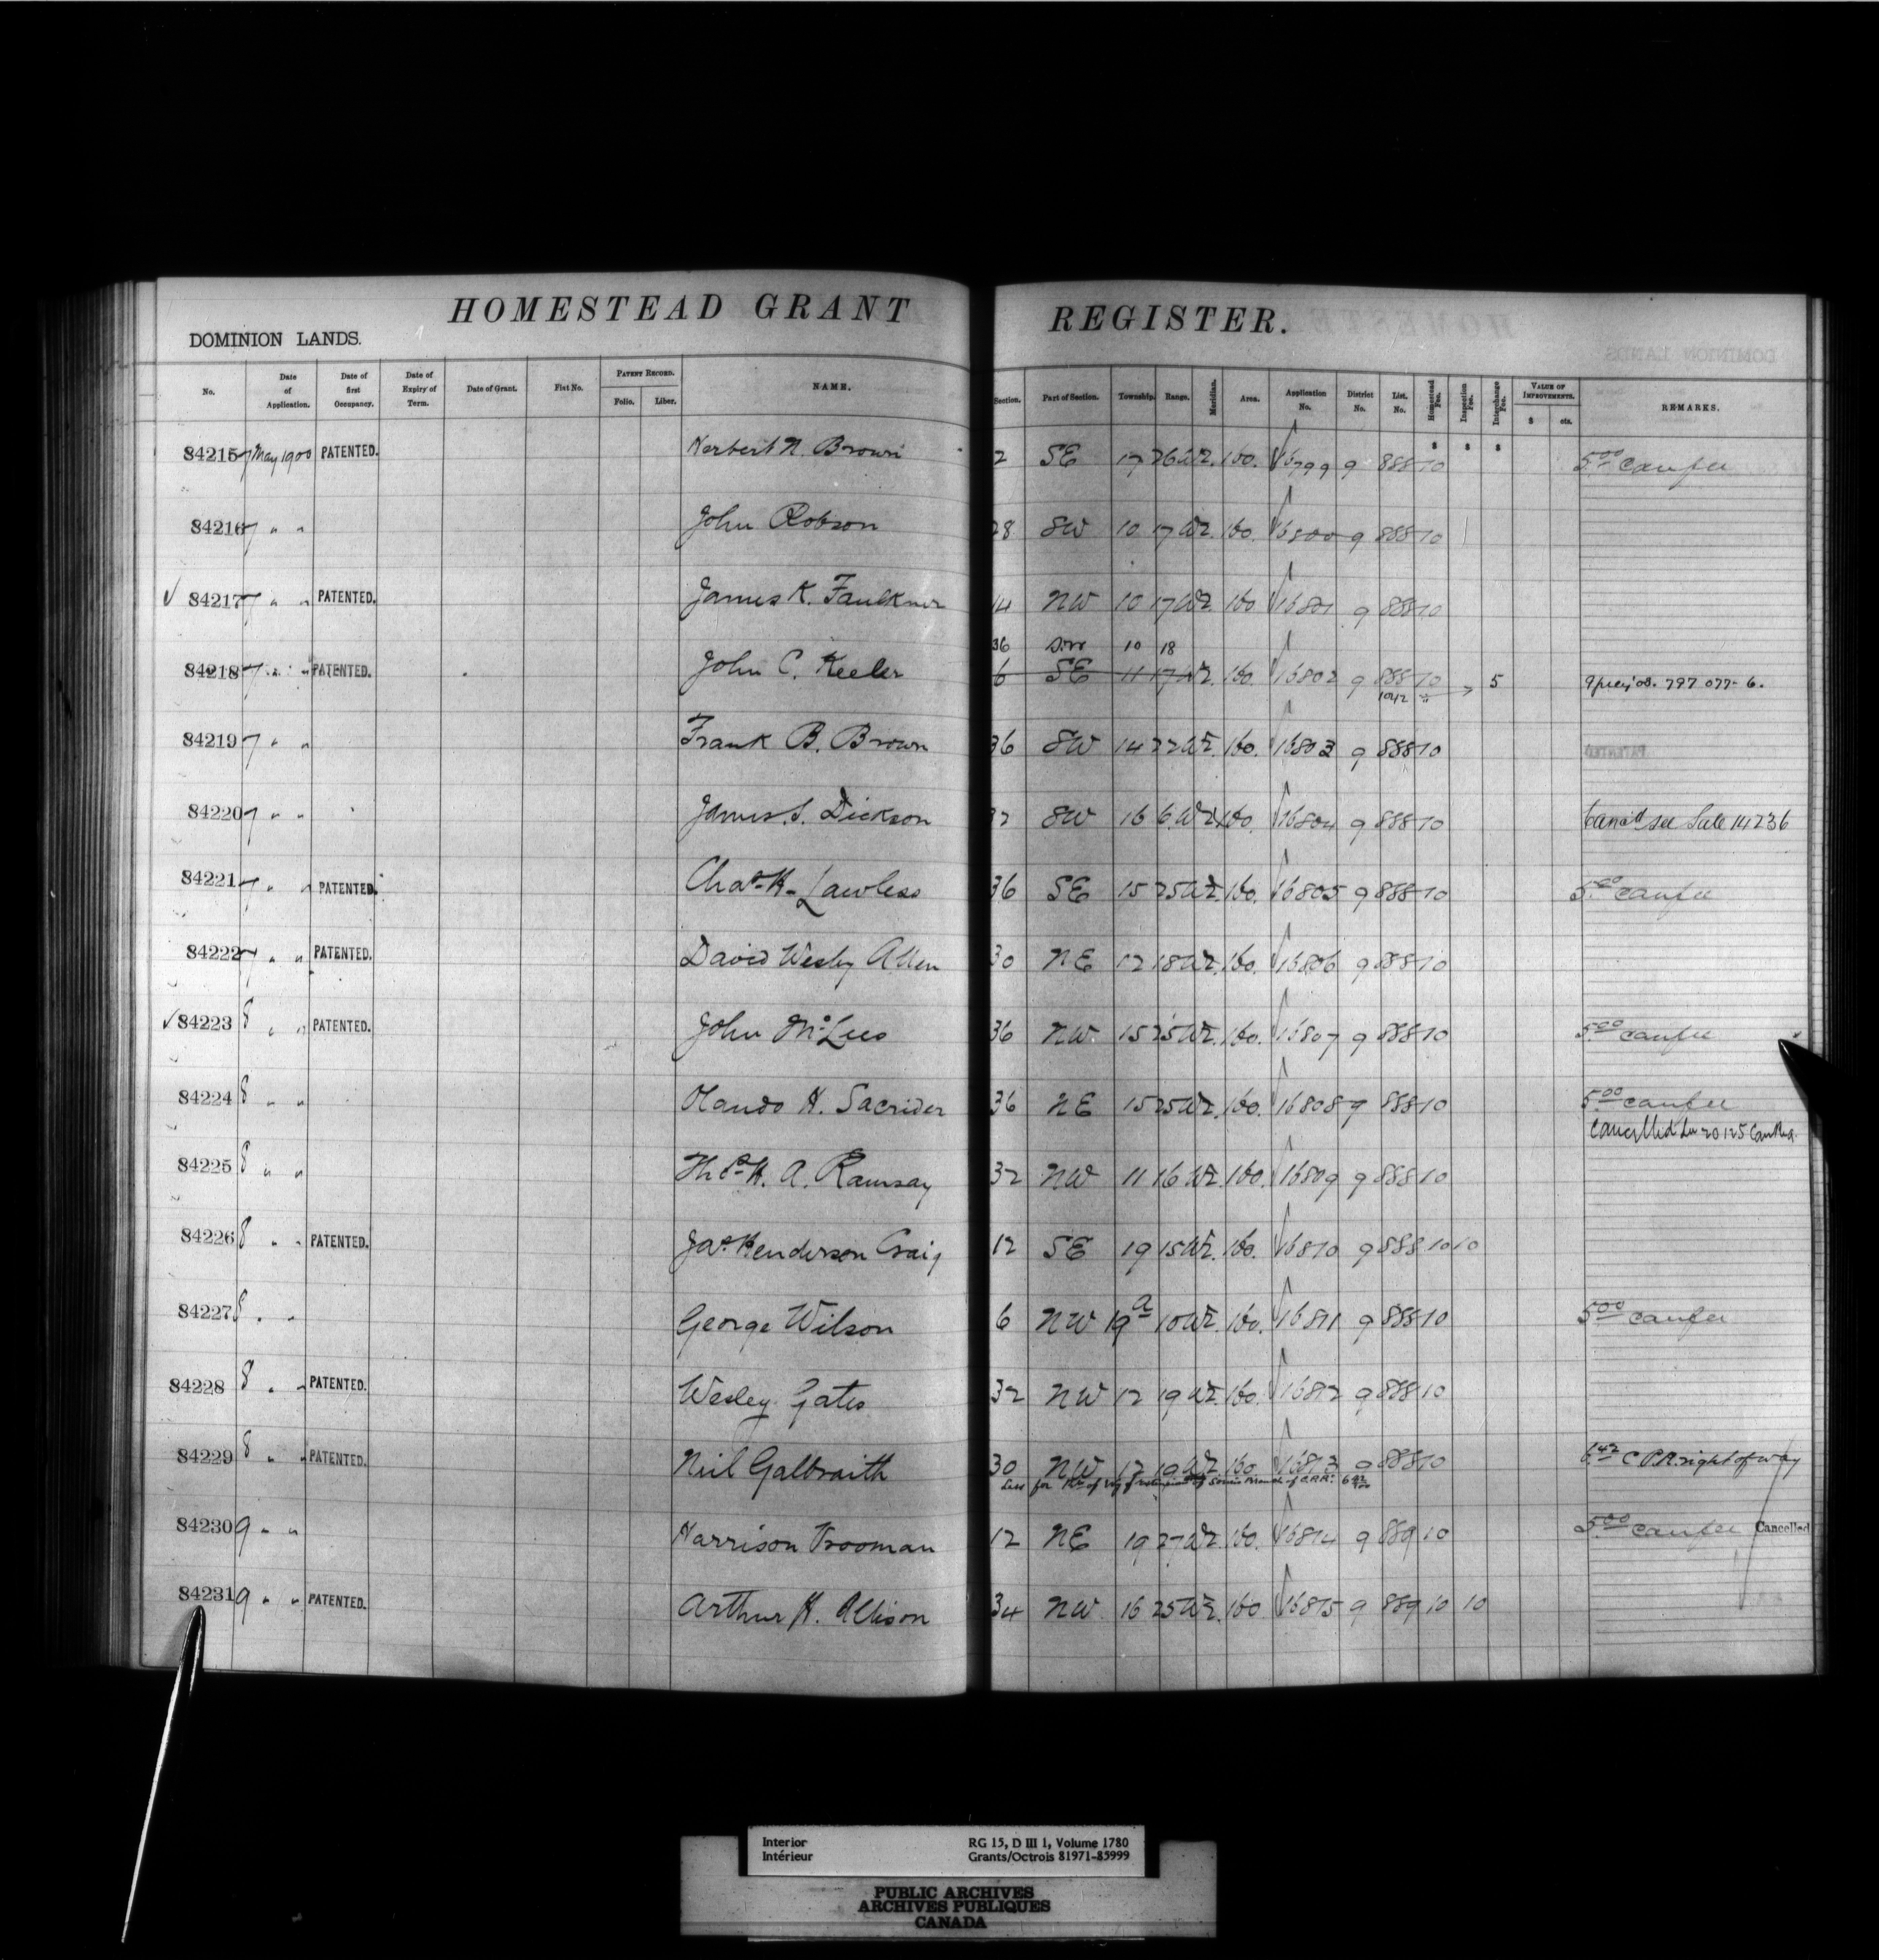 HOMESTEAD GRANT REGISTER.
DOMINION LANDS.
No. Date of Application. Date of first Occupancy. Date of Expiry of Term. Date of Grant. Fiat No. PATENT RECORD. Folio. Liber. NAME. Section. Part of Section. Township. Range. Meridian. Area. Application No. District No. List. No. Homestead Fee. Inspection Fee. Interchange Fee. VALUE OF IMPROVEMENTS. $ cts. REMARKS.
$ $ $
84215 7 May 1900 PATENTED. Herbert N. Brown 2 SE 17 26 W2. 160. 16799 9 888 10 5.00 canfee
84216 7 " " John Robson 28 SW 10 17 W2. 160. 16800 9 888 10
84217 7 " " PATENTED. James K. Faulkner 14 NW 10 17 W2 160 16801 9 888 10
36 10 18
84218 7 " " PATENTED. John C. Keeler 6 SE 11 17 W2. 160. 16802 9 888 10 5 797 077- 6.
1042
84219 7 " " Frank B. Brown 36 SW 14 22 W2. 160. 16803 9 888 10
84220 7 " " James. S. Dickson 32 SW 16 6 W2 160. 16804 9 888 10 Canc'd see Sale 14236
84221 7 " " PATENTED. Chas. H. Lawless 36 SE 15 25 W2. 160. 16805 9 888 10 5.00 canfee
84222 7 " " PATENTED. David Wesley Allen 30 NE 12 18 W2. 160. 16806 9 888 10
84223 8 " " PATENTED. John McLees 36 NW. 15 25 W2. 160. 16807 9 888 10 5.00 canfee
84224 8 " " Olando H. Sacrider 36 NE 15 25 W2. 160. 16808 9 888 10 5.00 canfee
Cancelled 20125
84225 8 " " Thos. H. A. Ramsay 32 NW 11 16 W2. 160. 16809 9 888 10
84226 8 " " PATENTED. Jas. Henderson Craig 12 SE 19 15 W2. 160. 16810 9 888 10 10
84227 8 " " George Wilson 6 NW 19a 10 W2. 160. 16811 9 888 10 5.00 canfee
84228 8 " " PATENTED. Wesley Gates 32 NW 12 19 W2. 160. 16812 9 888 10
84229 8 " " PATENTED. Neil Galbraith 30 NW 12 19 W2. 160. 16813 9 888 10 6.42 C.P.R. right of way
Less for Rt of Way Souris Branch of C.P.R. 6 42/100
84230 9 " " Harrison Vrooman 12 NE 19 27 W2. 160. 16814 9 889 10 5.00 canfee Cancelled
84231 9 " " PATENTED. Arthur H. Allison 34 NW 16 25 W2. 160 16815 9 889 10 10
Interior RG 15, D III 1, Volume 1780
Intérieur Grants/Octrois 81971-85999
PUBLIC ARCHIVES
ARCHIVES PUBLIQUES
CANADA